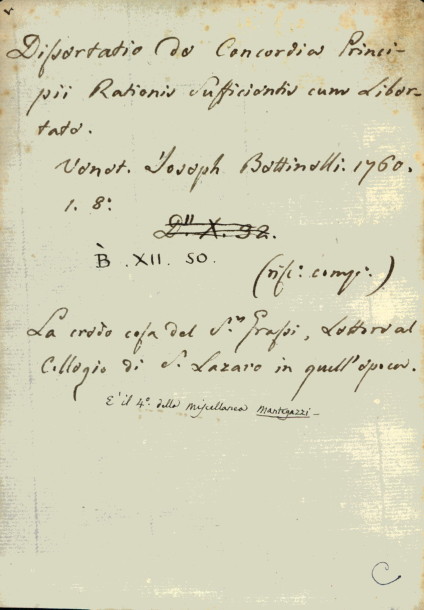 Dissertatio de Concordia Princi-
pii Rationis Sufficientis cum Liber-
tate.
Venet. Joseph Bettinelli. 1760.
1. 8.°
D.'' X. 92.
B .XII. 50.
La credo cosa del S.r Grassi, Lettore al
Collegio di S. Lazaro in quell'epoca.
È il 4.° della Miscellanea Mantegazzi_
C